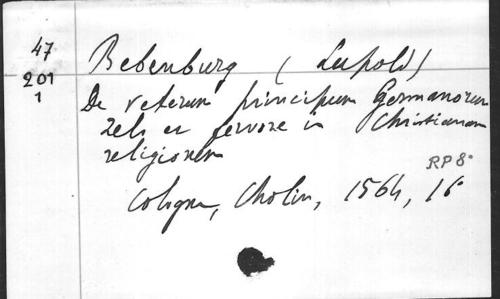 47
201
1
Bebenburg (Lupold)
De veterum principum Germanorum
zelo et fervore in Christianam
religionem
RP 8°
Cologne, Cholin, 1564, 16°